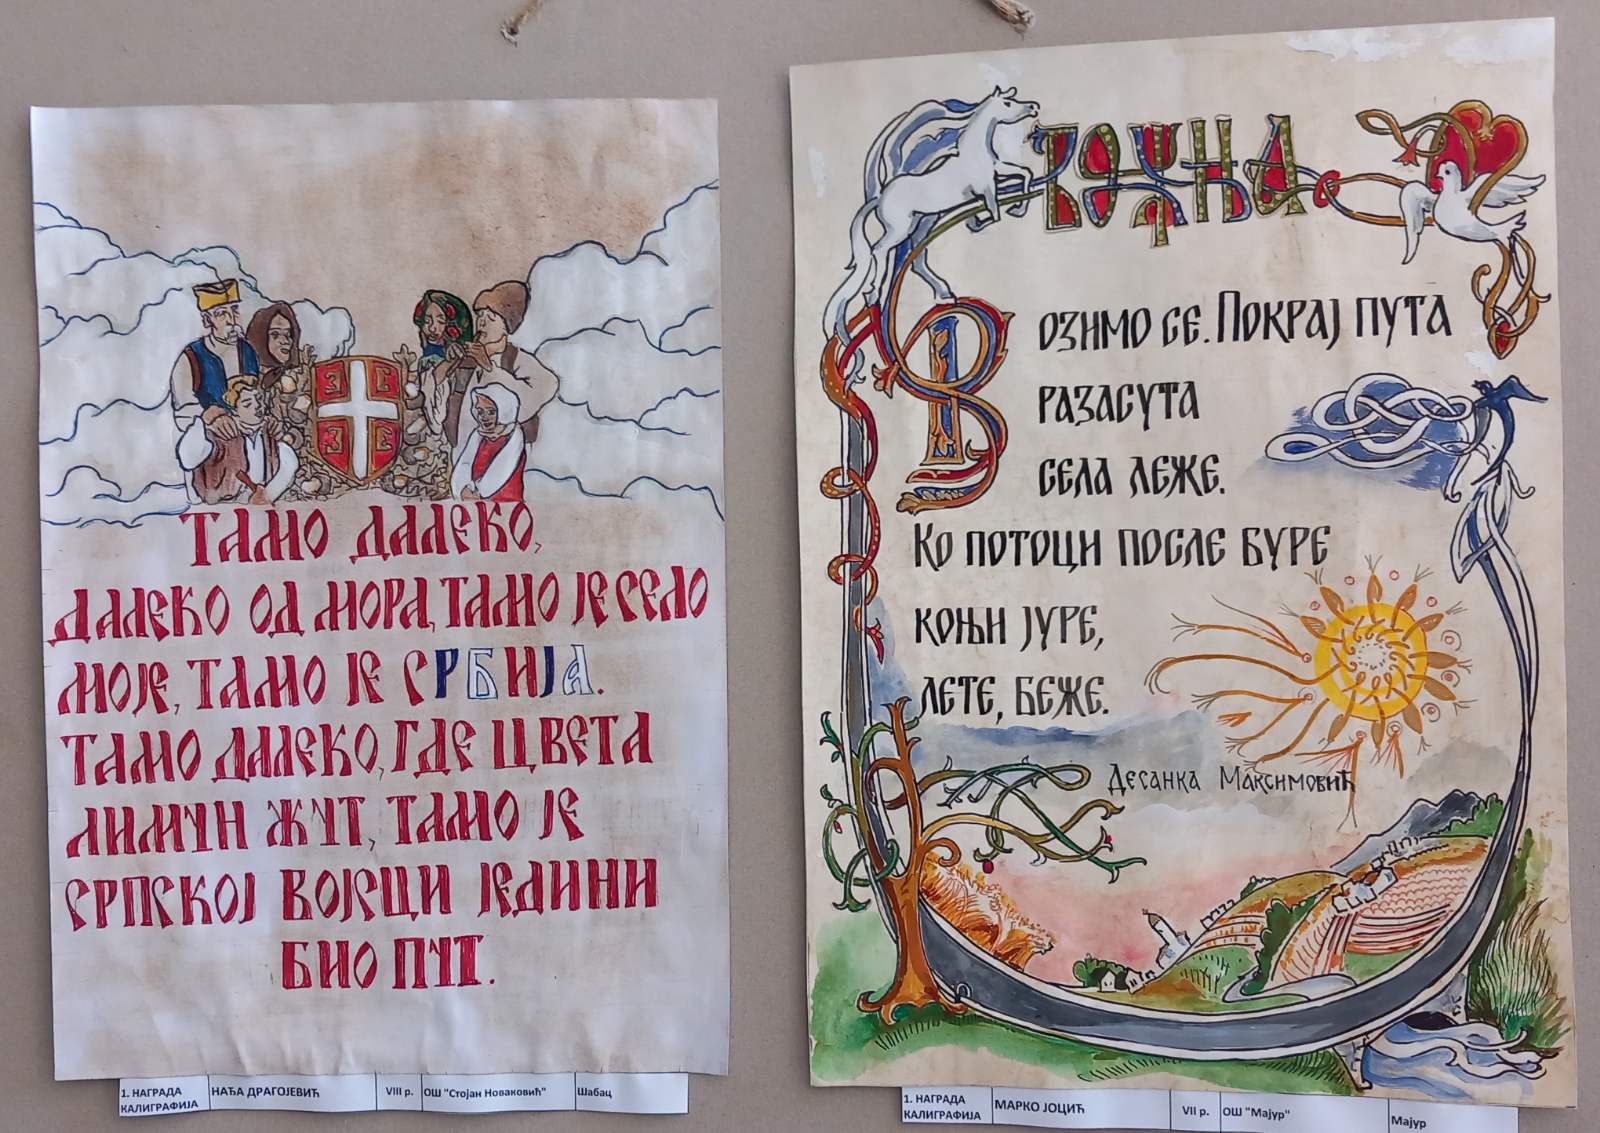 ТАМО ДАЛЕКО,
ДАЛЕКО ОД МОРА, ТАМО ЈЕ СЕЛО
МОЈЕ, ТАМО ЈЕ СРБИЈА.
ТАМО ДАЛЕКО, ГДЕ ЦВЕТА
ЛИМУН ЖУТ, ТАМО ЈЕ
СРПСКОЈ ВОЈСЦИ ЈЕДИНИ
БИО ПУТ.
1. НАГРАДА
КАЛИГРАФИЈА
НАЂА ДРАГОЈЕВИЋ
VIII р.
ОШ "Стојан Новаковић"
Шабац
ВОЖЊА
ВОЗИМО СЕ. ПОКРАЈ ПУТА
РАЗАСУТА
СЕЛА ЛЕЖЕ.
КО ПОТОЦИ ПОСЛЕ БУРЕ
КОЊИ ЈУРЕ,
ЛЕТЕ, БЕЖЕ.
Десанка Максимовић
1. НАГРАДА
КАЛИГРАФИЈА
МАРКО ЈОЦИЋ
VII р.
ОШ "Мајур"
Мајур